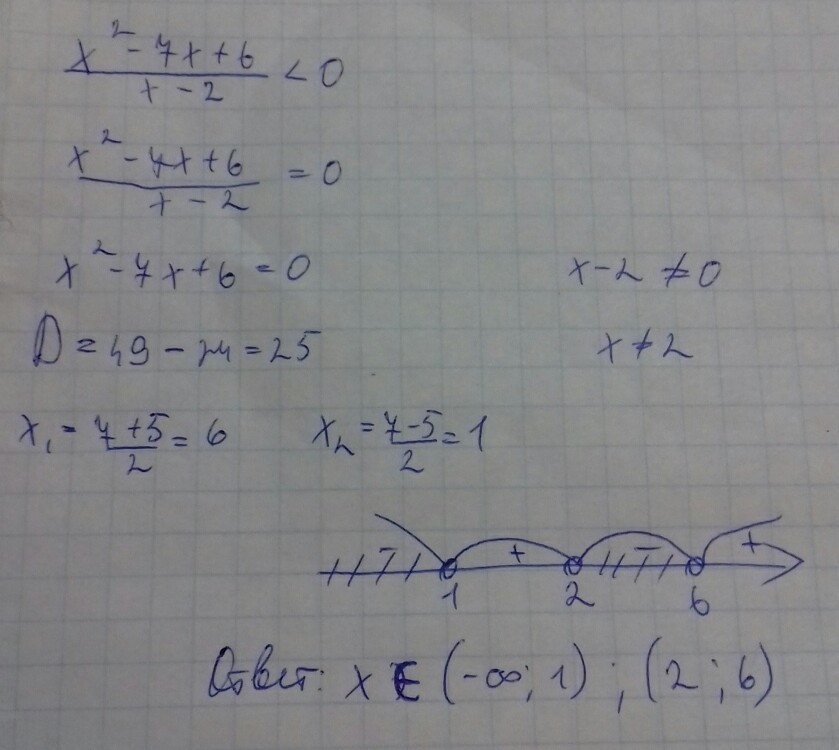 x² - 7x + 6 / x - 2 < 0
x² - 7x + 6 / x - 2 = 0
x² - 7x + 6 = 0 x - 2 ≠ 0
D = 49 - 24 = 25 x ≠ 2
x₁ = 7 + 5 / 2 = 6 x₂ = 7 - 5 / 2 = 1
- + - +
1 2 6
Ответ: x ∈ (-∞; 1) ; (2 ; 6)